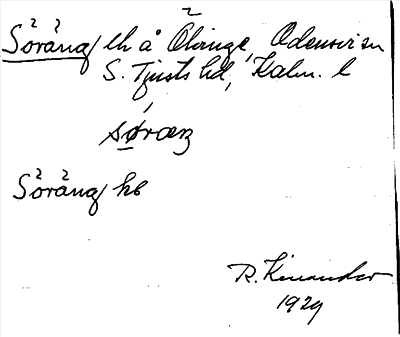 Söräng lh å Ölvinge, Odensvi sn
S. Tjusts hd, Kalm. l
søræŋ
Söräng hb
R. Kinander
1929